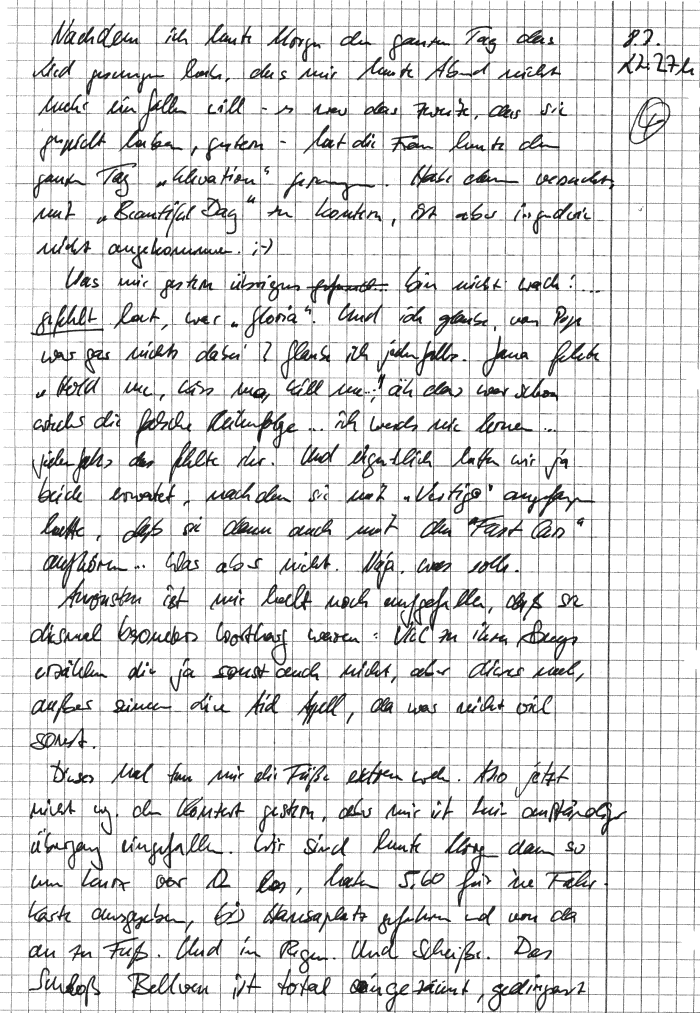 Nachdem ich heute Morgen den ganzen Tag das
Lied gesungen hab, das mir heute Abend nicht
mehr einfallen will - es war das zweite, das sie
gespielt haben, gestern - hat die Frau heute den
ganzen Tag "Elevation" gesungen. Habe dann versucht,
mit "Beautiful Day" zu kontern, ist aber irgendwie
nicht angekommen. ;-)
Was mir gestern übrigens bin nicht wach! ...
gefehlt hat, war "Gloria". Und ich glaube, von Pop
war gar nichts dabei? Glaube ich jedenfalls. Jana fehlte
"Hold me, kiss me, kill me", äh das war schon
die falsche Reihenfolge... ich werds nie lernen...
jedenfalls das fehlte ihr. Und eigentlich hatten wir ja
beide erwartet, nachdem sie mit "Vertigo" angefangen
hatte, daß sie dann auch mit den "Fast Cars"
aufhören... Was aber nicht. Naja. was solls.
Ansonsten ist mir halt noch aufgefallen, daß sie
diesmal besonders wortkarg waren: Viel zu ihren Songs
erzählen die ja sonst auch nicht, aber dieses mal,
außer seinem Live Aid Appell, da was nicht viel
sonst.
Dieses Mal tun mir die Füße extrem weh. Also jetzt
nicht wg. dem Konzert gestern, aber mir ist kein anständiger
Übergang eingefallen. Wir sind heute Morgen dann so
um kurz vor 12 los, haben 5,60 für ne Fahr-
karte ausgegeben, bis Hansaplatz gefahren und von da
an zu Fuß. Und im Regen. Und Scheiße. Das
Schloß Bellvue ist total eingezäunt, gedingst
8.7.
22:27h
4